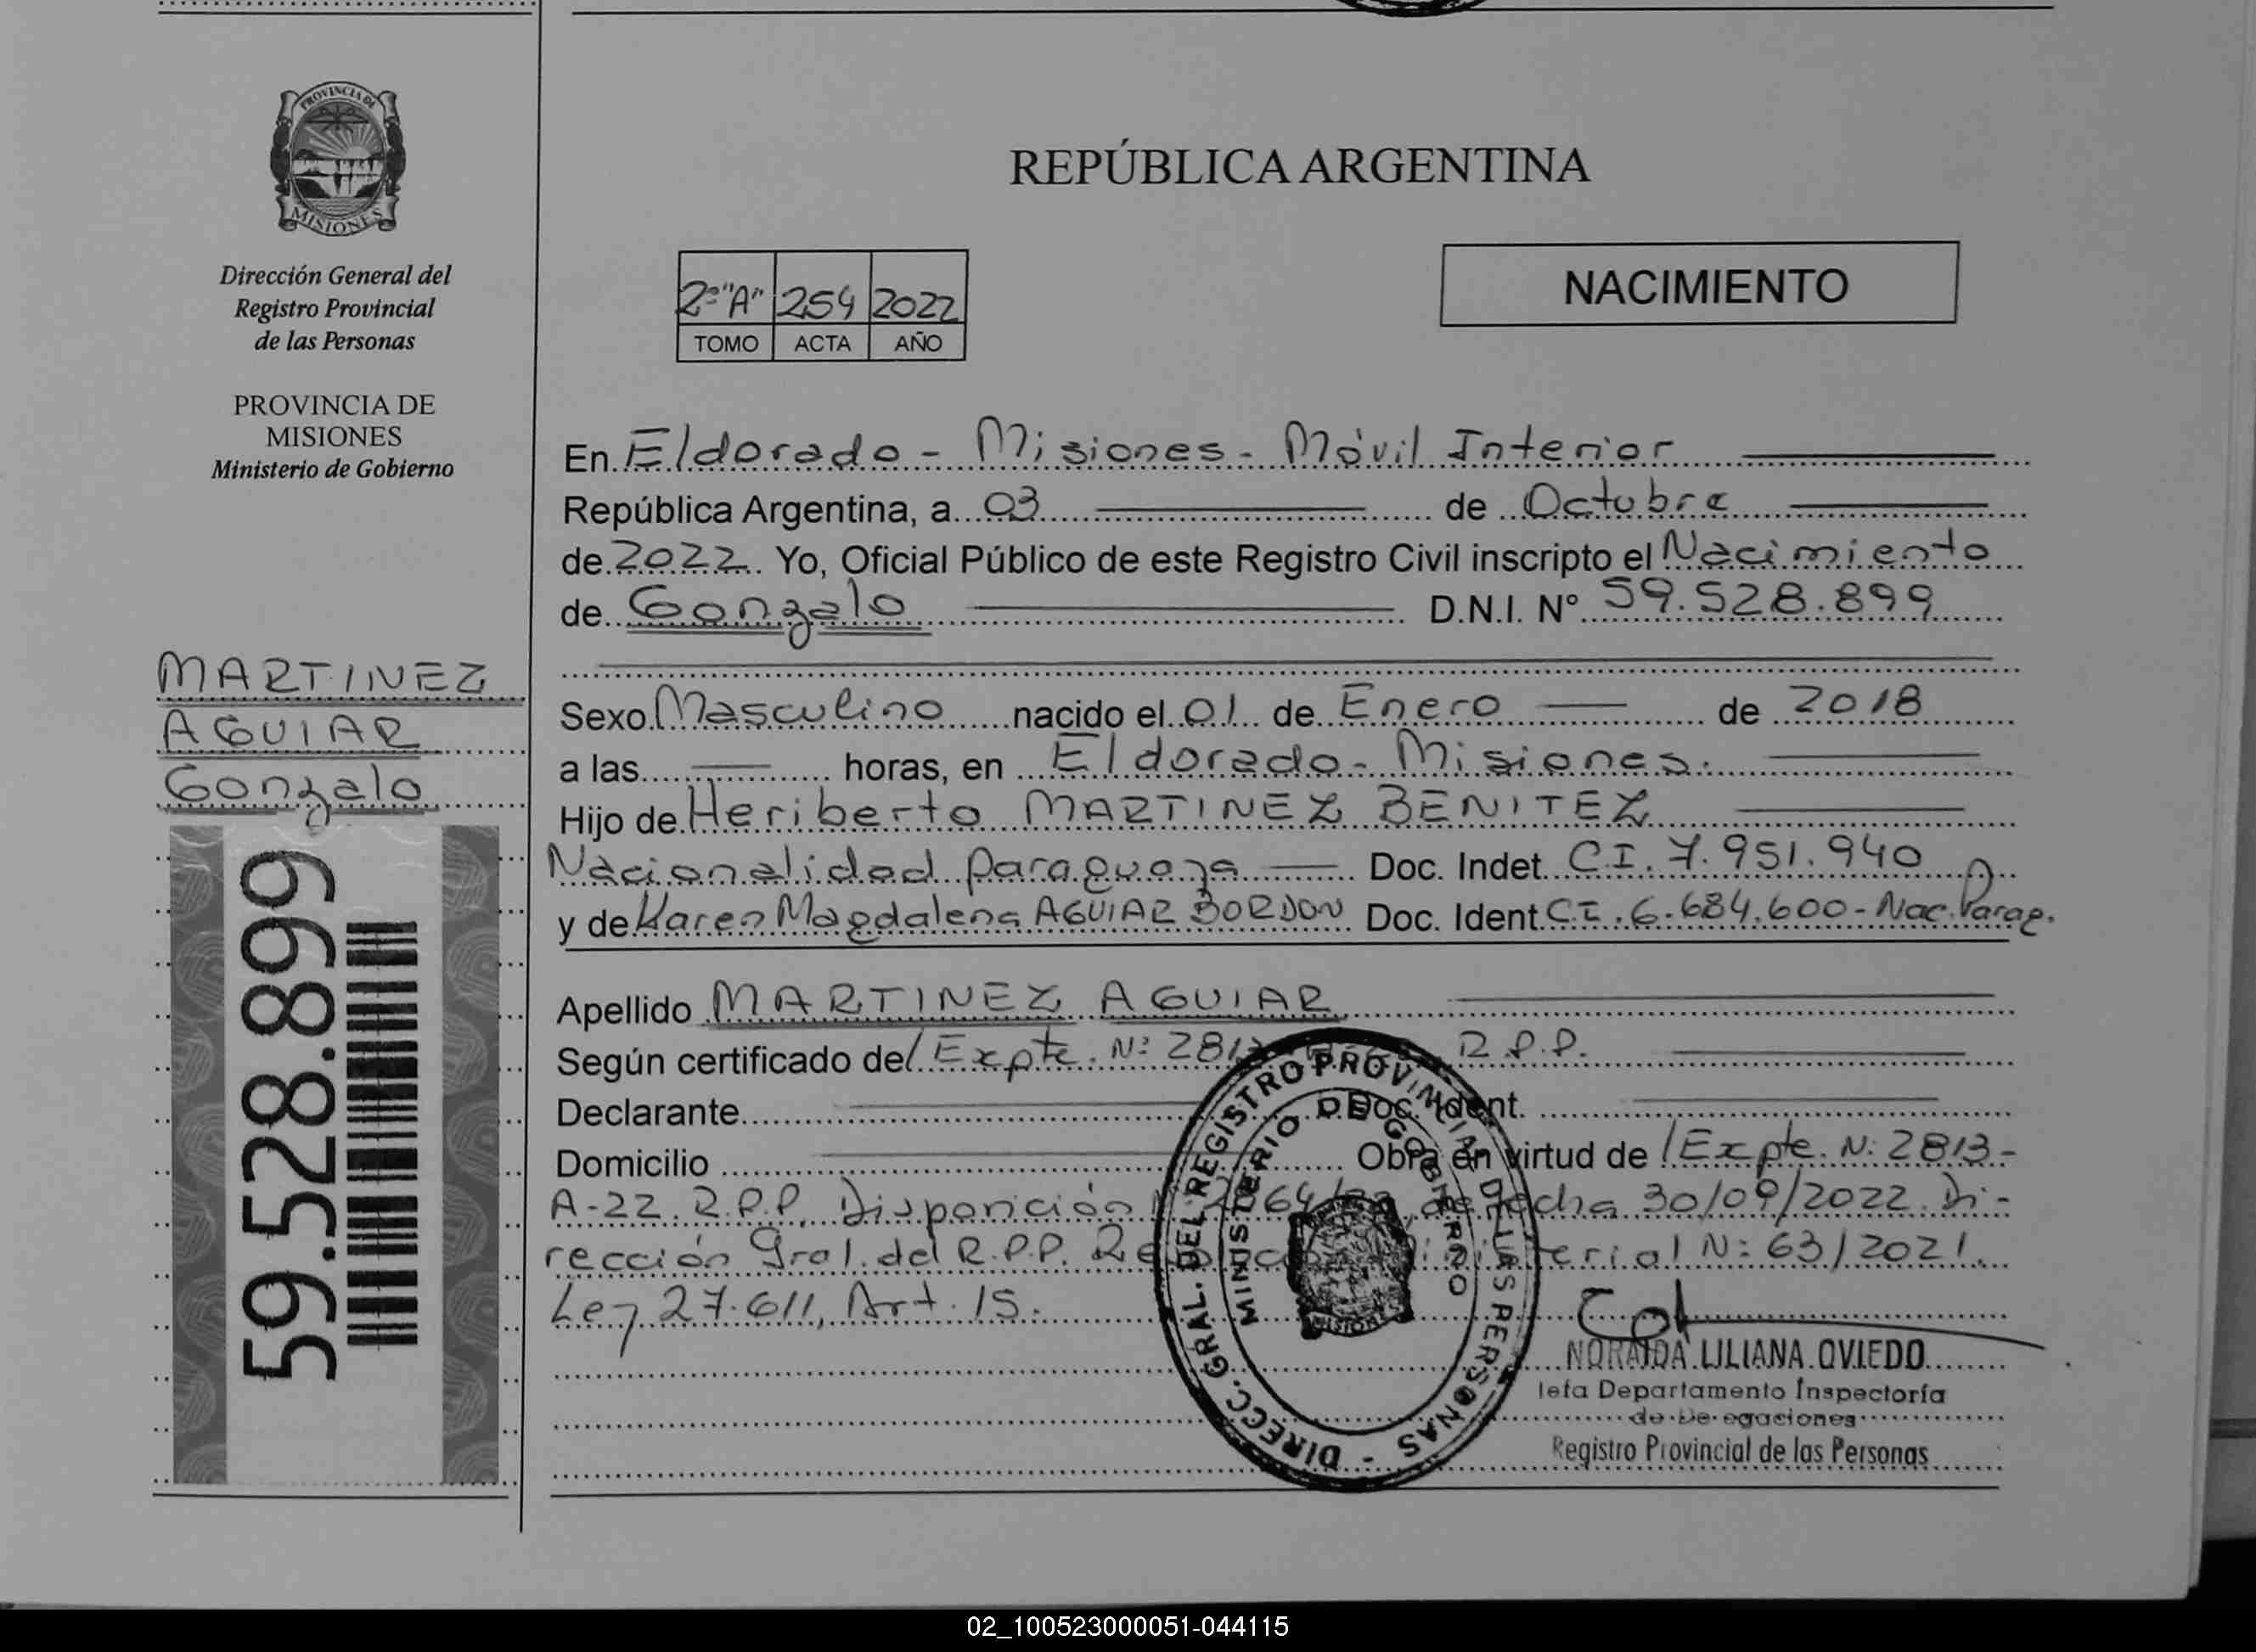 PROVINCIA DE
MISIONES
Dirección General del
Registro Provincial
de las Personas
PROVINCIA DE
MISIONES
Ministerio de Gobierno
MARTINEZ
AGUIAR
Gonzalo
59.528.899
REPÚBLICA ARGENTINA
2º "A" 254 2022
TOMO ACTA AÑO
NACIMIENTO
En Eldorado - Misiones - Móvil Interior
República Argentina, a 03 de Octubre
de 2022 Yo, Oficial Público de este Registro Civil inscripto el Nacimiento
de Gonzalo D.N.I. Nº 59.528.899
Sexo Masculino nacido el 01 de Enero de 2018
a las horas, en Eldorado - Misiones.
Hijo de Heriberto MARTINEZ BENITEZ
Nacionalidad paraguaya Doc. Indet. C.I. 7.951.940
y de Karen Magdalena AGUIAR BORDON Doc. Ident C.I. 6.684.600 - Nac. Parag.
Apellido MARTINEZ AGUIAR
Según certificado de Expte. Nº 2813 R.P.P.
Declarante Doc. Ident.
Domicilio Obra en virtud de Expte. N: 2813-
A-22. R.P.P. Disposición de fecha 30/09/2022. Di-
rección Gral. del R.P.P. N: 63/2021.
Ley 27.611, Art. 15.
DIRECC. GRAL. DEL REGISTRO PROVINCIAL DE LAS PERSONAS -
MINISTERIO DE GOBIERNO
MISIONES
NORAIDA LILIANA OVIEDO
Jefa Departamento Inspectoría
de Delegaciones
Registro Provincial de las Personas
02_100523000051-044115